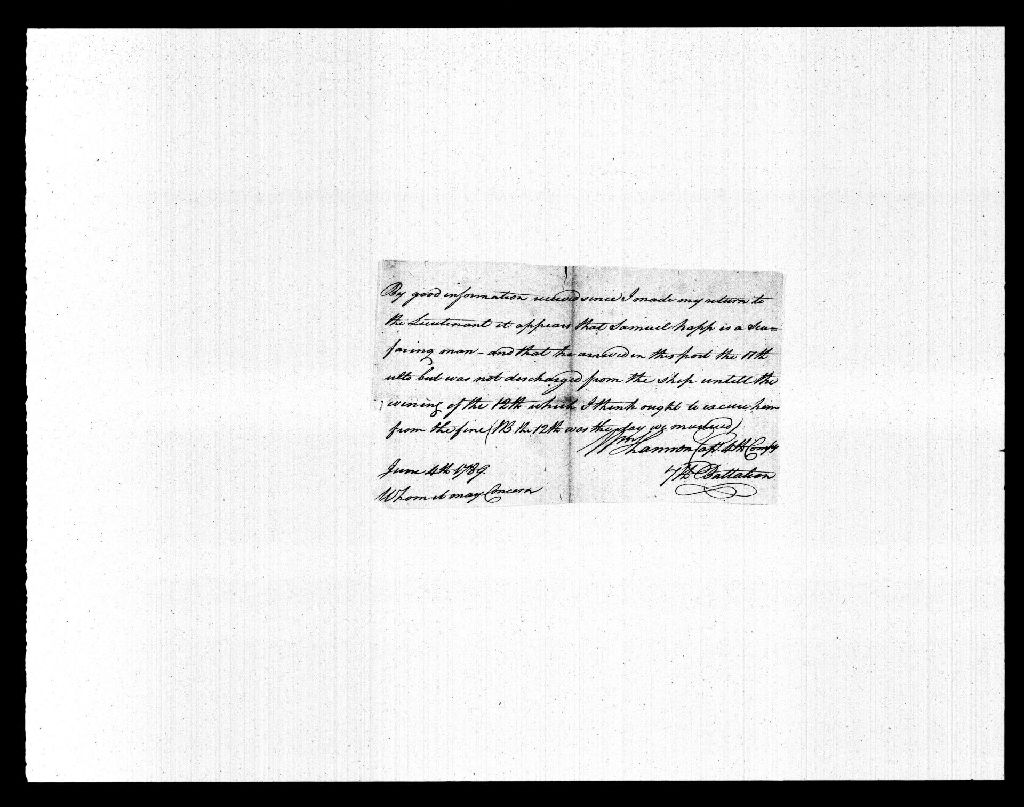 By good information recieved since I made my return to
the Lieutenant it appears that Samuel happ is a Sea=
faring man - and that he arrived in this port the 11th
ulto but was not descharged from the ship untill the
evening of the 12th which I think ought to excuse him
from the fine (NB the 12th was the day we mustered)
Wm Shannon Capt 4th Compy
7th Battalion
June 4th 1789
Whom it may Concern